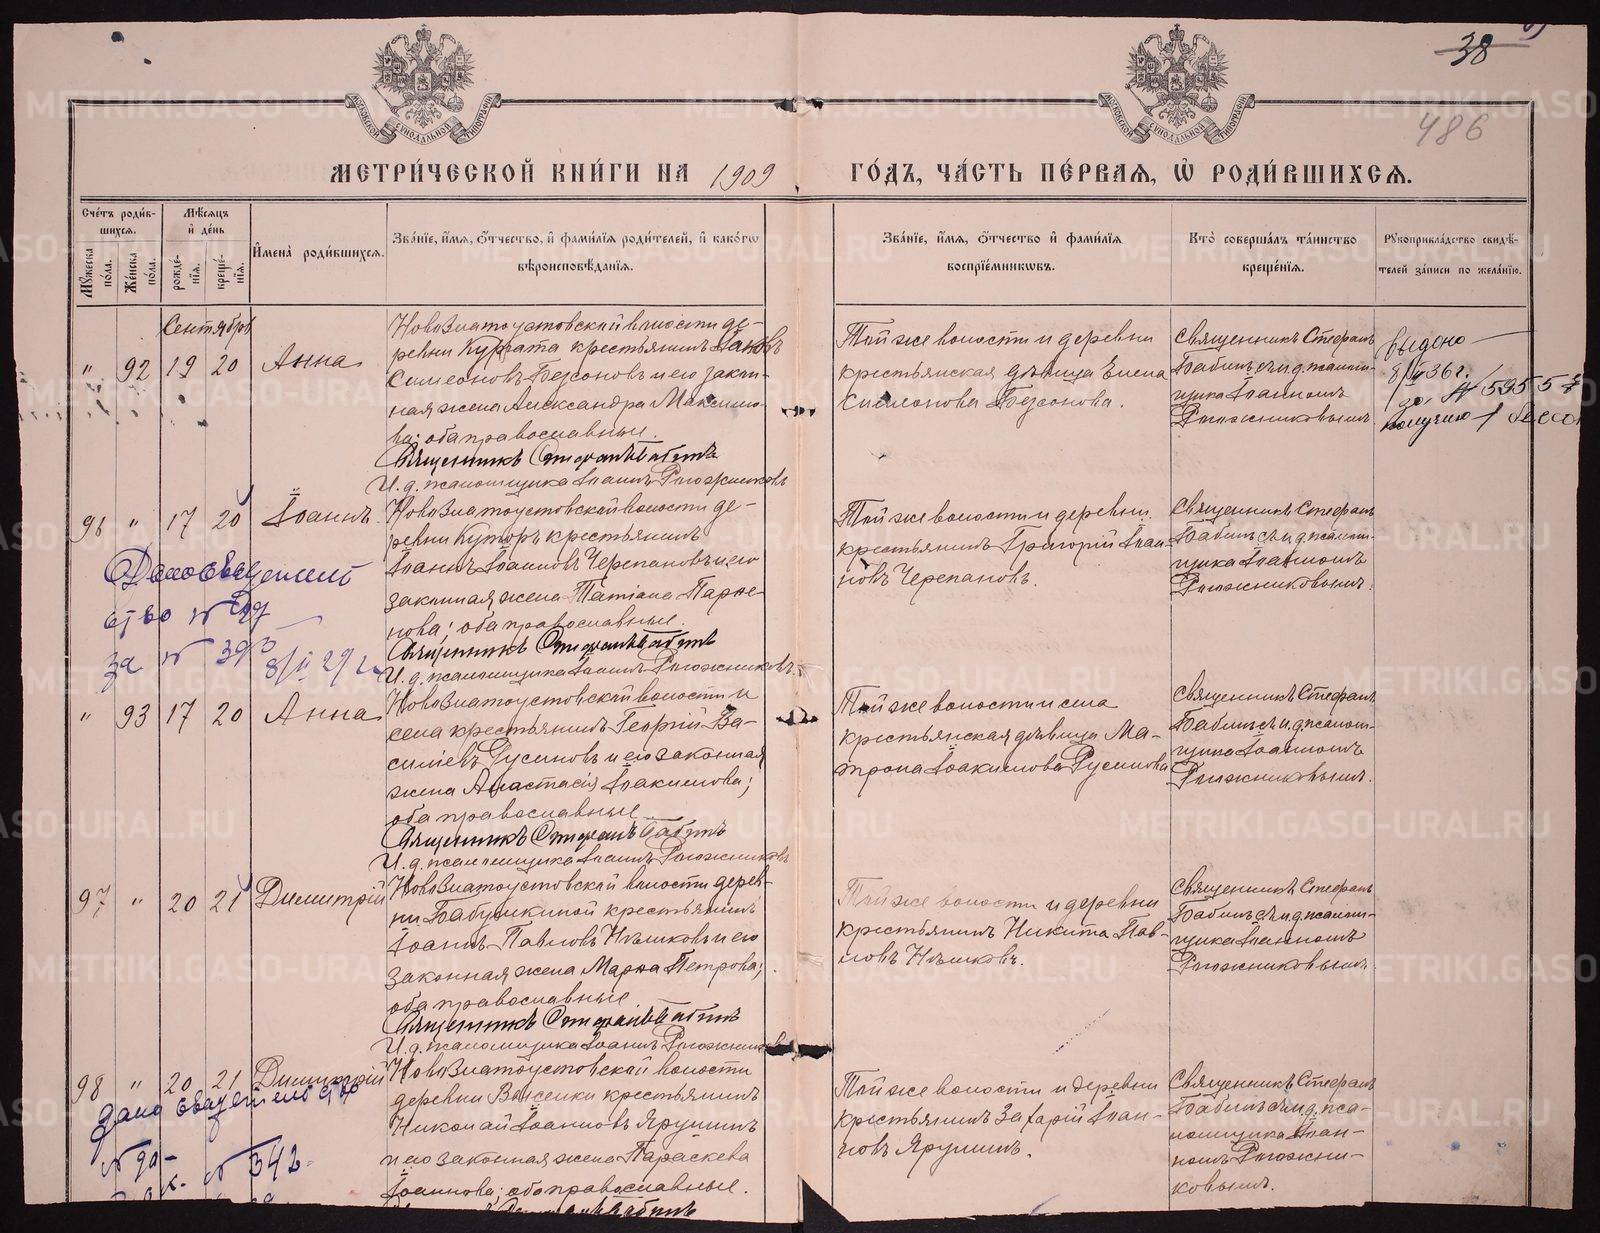 38
486
МОСКОВСКОЙ СѴНОДАЛЬНОЙ ТИПОГРАФІИ
МОСКОВСКОЙ СѴНОДАЛЬНОЙ ТИПОГРАФІИ
МЕТРИ́ЧЕСКОЙ КНИ́ГИ НА 1909 ГО́ДЪ, ЧА́СТЬ ПЕ́РВАЯ, Ѡ РОДИ́ВШИХСЯ.
Сче́тъ роди́в-
шихся.
Му́жеска по́ла.
Же́нска по́ла.
Мѣ́сяцъ
и҆ де́нь
рожде́-
нїя.
креще́-
нїя.
И҆мена̀ роди́вшихся.
Зва́нїе, и҆́мя, ѻ҆́тчество, и҆ фами́лїя роди́телей, и҆ како́гѡ
вѣроисповѣ́данїя.
Зва́нїе, и҆́мя, ѻ҆́тчество и҆ фами́лїя
воспрїе́мникѡвъ.
Кто̀ соверша́лъ та́инство
креще́нїя.
Рꙋкоприкла́дство свидѣ́-
телей за́писи по жела́нїю.
Сентябрь
" 92 19 20 Анна
НовоЗлатоустовской волости де-
ревни Кургата крестьянинъ Іаковъ
Симеоновъ Безсоновъ и его закон-
ная жена Александра Максимо-
ва; оба православные.
Священникъ Стефанъ Бабинъ
И. д. псаломщика Іоаннъ Рогожниковъ
Той же волости и деревни
крестьянская дѣвица Елена
Симеонова Безсонова.
Священникъ Стефанъ
Бабинъ съ и. д. псалом-
щика Іоанномъ
Рогожниковымъ.
выдано
8/ 36 г.
за № 5955
получено
96 " 17 20 Іоаннъ
НовоЗлатоустовской волости де-
ревни Куторъ крестьянинъ
Іоаннъ Іоанновъ Черепановъ и его
законная жена Татіана Парѳе-
нова; оба православные.
Священникъ Стефанъ Бабинъ
И. д. псаломщика Іоаннъ Рогожниковъ.
Той же волости и деревни
крестьянинъ Григорій Іоан-
новъ Черепановъ.
Священникъ Стефанъ
Бабинъ съ и. д. псалом-
щика Іоанномъ
Рогожниковымъ.
Дано свидетель
ство №
за №
" 93 17 20 Анна
НовоЗлатоустовской волости и
села крестьянинъ Георгій Ва-
силіевъ Русиновъ и его законная
жена Анастасія Іоакимова;
оба православные.
Священникъ Стефанъ Бабинъ
И. д. псаломщика Іоаннъ Рогожниковъ
Той же волости и села
крестьянская дѣвица Ма-
трона Іоакимова Русинова
Священникъ Стефанъ
Бабинъ съ и. д. псалом-
щика Іоанномъ
Рогожниковымъ.
97 " 20 21 Димитрій
НовоЗлатоустовской волости дерев-
ни Бабушкиной крестьянинъ
Іоаннъ Павловъ Нѣшковъ и его
законная жена Марѳа Петрова;
оба православные
Священникъ Стефанъ Бабинъ
И. д. псаломщика Іоаннъ Рогожниковъ
Той же волости и деревни
крестьянинъ Никита Пав-
ловъ Нѣшковъ.
Священникъ Стефанъ
Бабинъ съ и. д. псалом-
щика Іоанномъ
Рогожниковымъ.
98 " 20 21 Димитрій
НовоЗлатоустовской волости
деревни Выселки крестьянинъ
Николай Іоанновъ Ярушинъ
и его законная жена Параскева
Іоаннова; оба православные.
Той же волости и деревни
крестьянинъ Захарій Іоан-
новъ Ярушинъ.
Священникъ Стефанъ
Бабинъ съ и. д. пса-
ломщика Іоан-
номъ Рогожни-
ковымъ.
дано свидетельство
№ 342
METRIKI.GASO-URAL.RU